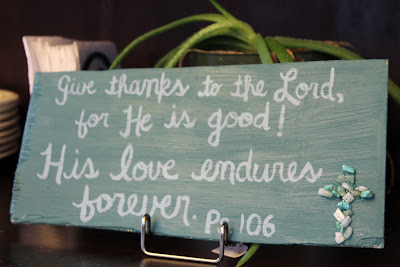 Give thanks to the Lord,
for He is good!
His love endures
forever. Ps 106